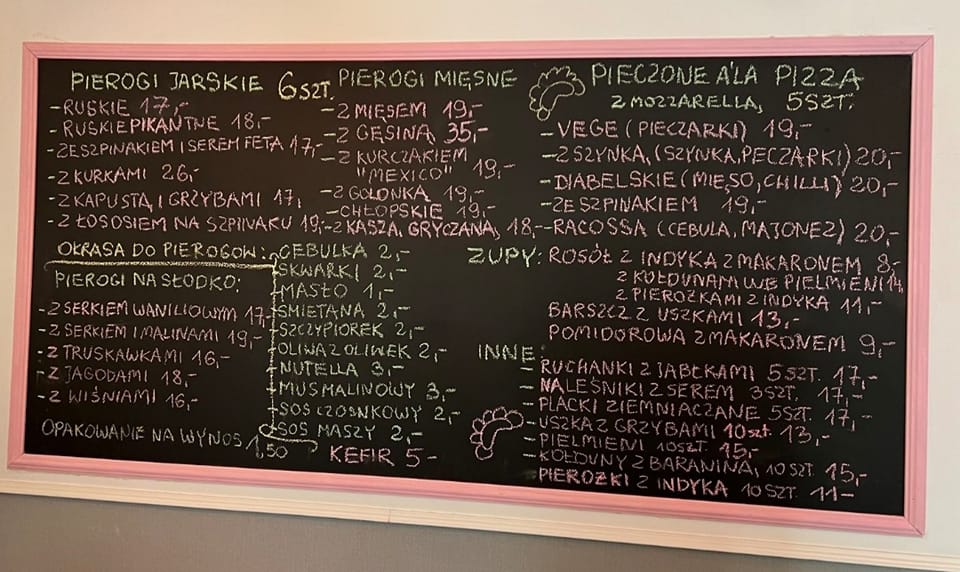 PIEROGI JARSKIE 6SZT.
- RUSKIE 17,-
- RUSKIE PIKANTNE 18,-
- ZE SZPINAKIEM I SEREM FETA 17,-
- Z KURKAMI 26,-
- Z KAPUSTĄ I GRZYBAMI 17,
- Z ŁOSOSIEM NA SZPINAKU 19,-
PIEROGI MIĘSNE
- Z MIĘSEM 19,-
- Z GĘSINĄ 35,-
- Z KURCZAKIEM
"MEXICO" 19,-
- Z GOLONKĄ 19,-
- CHŁOPSKIE 19,-
- Z KASZĄ GRYCZANĄ 18,-
PIECZONE A'LA PIZZA
Z MOZZARELLĄ 5SZT.
- VEGE (PIECZARKI) 19,-
- Z SZYNKĄ (SZYNKA, PECZARKI) 20,-
- DIABELSKIE (MIĘSO, CHILLI) 20,-
- ZE SZPINAKIEM 19,-
- RACOSSA (CEBULA, MAJONEZ) 20,-
OKRASA DO PIEROGÓW:
- CEBULKA 2,-
- SKWARKI 2,-
- MASŁO 1,-
- ŚMIETANA 2,-
- SZCZYPIOREK 2,-
- OLIWA Z OLIWEK 2,-
- NUTELLA 3,-
- MUS MALINOWY 3,-
- SOS CZOSNKOWY 2,-
- SOS MASZY 2,-
PIEROGI NA SŁODKO:
- Z SERKIEM WANILIOWYM 17,-
- Z SERKIEM I MALINAMI 19,-
- Z TRUSKAWKAMI 16,-
- Z JAGODAMI 18,-
- Z WIŚNIAMI 16,-
OPAKOWANIE NA WYNOS 1,50
KEFIR 5-
ZUPY: ROSÓŁ Z INDYKA Z MAKARONEM 8,-
Z KOŁDUNAMI WĘ PIELMIENI 14,
Z PIEROŻKAMI Z INDYKA 11,-
BARSZCZ Z USZKAMI 13,-
POMIDOROWA Z MAKARONEM 9,-
INNE:
- RUCHANKI Z JABŁKAMI 5SZT. 17,-
- NALEŚNIKI Z SEREM 3SZT. 17,-
- PLACKI ZIEMNIACZANE 5SZT. 17,-
- USZKA Z GRZYBAMI 10szt. 13,-
- PIELMIENI 10SZT. 15,-
- KOŁDUNY Z BARANINĄ 10 SZT. 15,-
- PIEROŻKI Z INDYKA 10 SZT. 11-